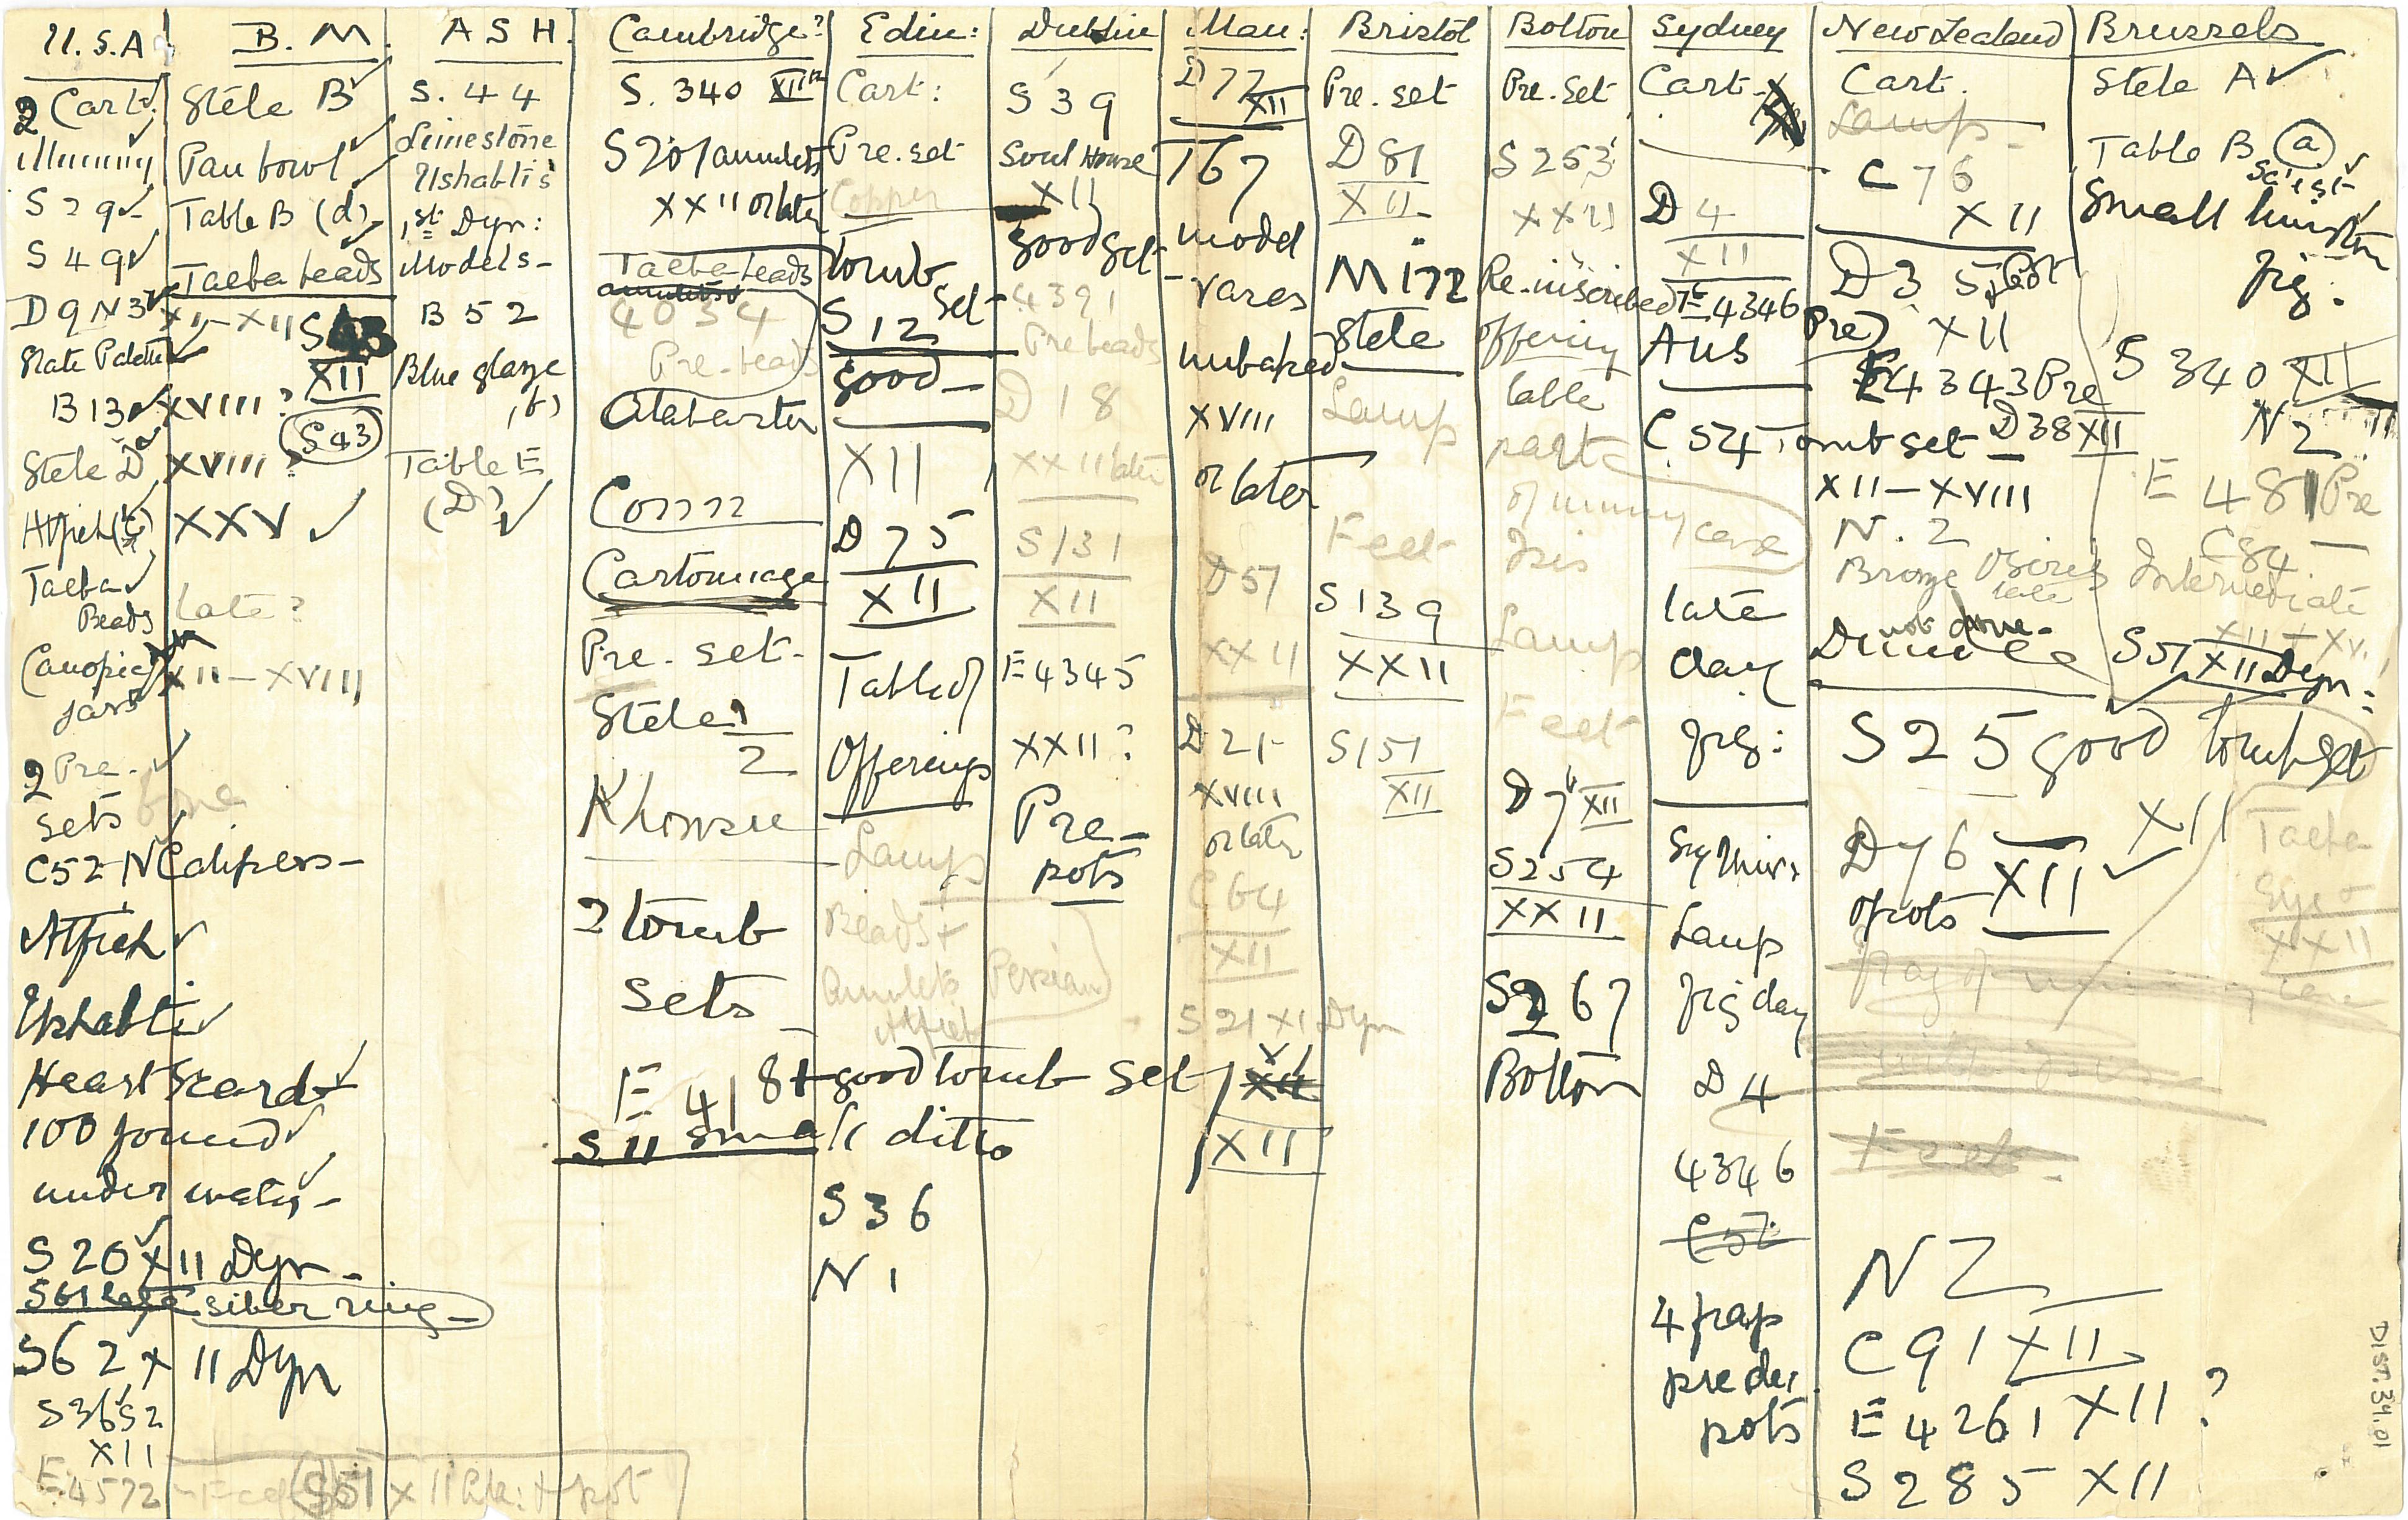 U.S.A
2 Cart:
Mummy
S 29
S 49
D 9 N 3
Slate Palette
B 13
Stele D
Atfieh
Taeba
Beads
Canopic
Jars
2 Pre.
sets
C 52 N Calipers
Atfieh
Ushabti
Heart Scarab
100 found
under water
S 20 XII Dyn
S 61 silver ring
S 62 XII Dyn
S 3652
XII
E 4572
S 51 XII + pot
B. M.
Stele B
Pan bowl
Table B (d)
Taeba beads
XI-XII
XII
XVIII?
S 43
XVIII?
XXV
Late?
XII-XVIII
A S H.
S. 44
Limestone
Ushabtis
1st Dyn:
Models
B 52
Blue glaze
Table E
(D)
Cambridge?
S. 340 XIIth
S 201 amulets
XXII or late
Taeba beads
amulets
4034
Pre-beads
Alabaster
Comm
Cartonnage
Pre. set
Stele 1
2
Khonsu
2 tomb
sets
E 418 + good tomb set
S 11 small ditto
Edin:
Cart:
Pre. set
Copper
tomb
set
S 12
good
XII
D 75
XII
Table of
Offerings
Lamps
Beads +
Amulets Persian
Atfieh
S 36
N 1
Dublin
S 39
Soul House
XII
good set
4391
Pre beads
D 18
XXII late
S 131
XII
E 4345
XXII?
Pre
pots
Man:
D 77
XII
T 67
model
vases
unbaked
XVIII
or later
D 51
XXII
D 21
XVIII
or later
C 64
XII
S 21 XI Dyn
XII
XII
Bristol
Pre. set
D 81
XII
M 172
Stele
Lamp
Feet
S 139
XXII
S 151
XII
Bolton
Pre. Set
S 253
XXII
Re-inscribed
offering
table
part
of mummy case
Isis
Lamp
Feet
D 7 XII
S 254
XXII
S 267
Bolton
Sydney
Cart.
D 4
XII
E 4346
Aus
C 54
late
clay
fig:
Sy Univ:
Lamp
fig clay
D 4
4346
C 52
4 frag
predy:
pots
New Zealand
Cart.
Lamp
C 76
XII
D 3 5 pot
Pre XII
E 4343 Pre
Tomb set D 38 XII
XII-XVIII
N. 2
Bronze Osiris
late
not done
S 25 good tomb set
XII
D 76
XII
of pots
frag of mummy case
Feet
NZ
C 91 XII
E 4261 XII ?
S 285 XII
Brussels
Stele A
Table B (a)
Small limestn
fig.
S 340 XII
N 2
E 481 Pre
C 84
Intermediate
XII-XV
S 51 XII Dyn:
Taeba
XXII
DIST.34.01